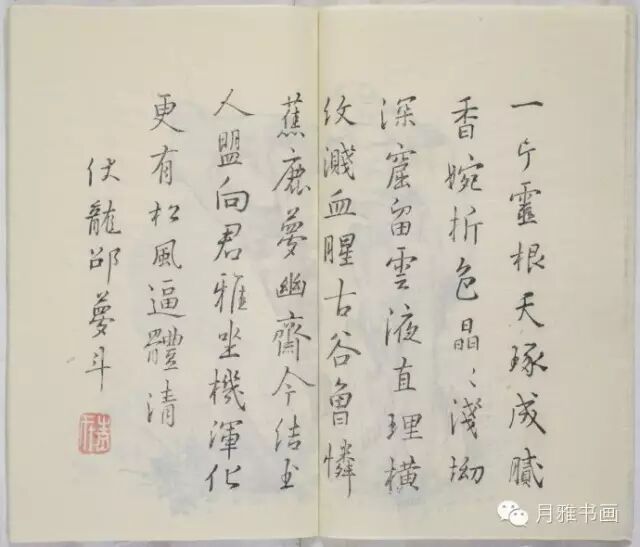 一片靈根天琢成膩
香婉折色晶〻淺坳
深窟留雲液直理橫
紋濺血腥古谷魯憐
蕉鹿夢幽齋今結玉
人盟向君雅坐機渾化
更有松風逼體清
伏龍邵夢斗
月雅书画